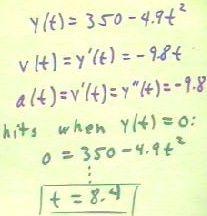 y(t) = 350 - 4.9t²
v(t) = y'(t) = -9.8t
a(t) = v'(t) = y''(t) = -9.8
hits when y(t) = 0:
0 = 350 - 4.9t²
⋮
t = 8.4